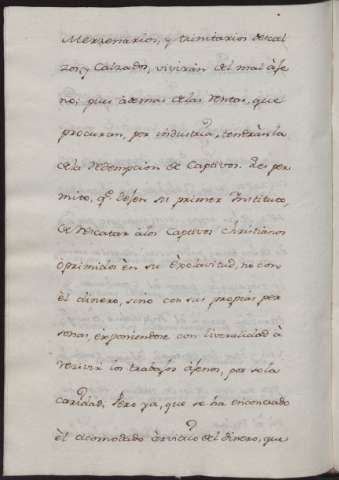 Merzenarios, y trinitarios descal
zos, y Calzados, vivirán del mal àge
no; pues àdemas de las rentas, que
procuran, por industria, tendràn la
de la redempcion de Captivos. Les per
mito, q.e dejen su primer Instituto
de rescatar à los Captivos christianos
oprimidos èn su èsclavitud, no con
èl dinero, sino con sus propias per
sonas, èxponiendose con liveralidad à
recivir los trabajos àgenos, por sola
caridad. Pero ya, que se ha encontrado
èl acomodado àrvitrio del dinero, que